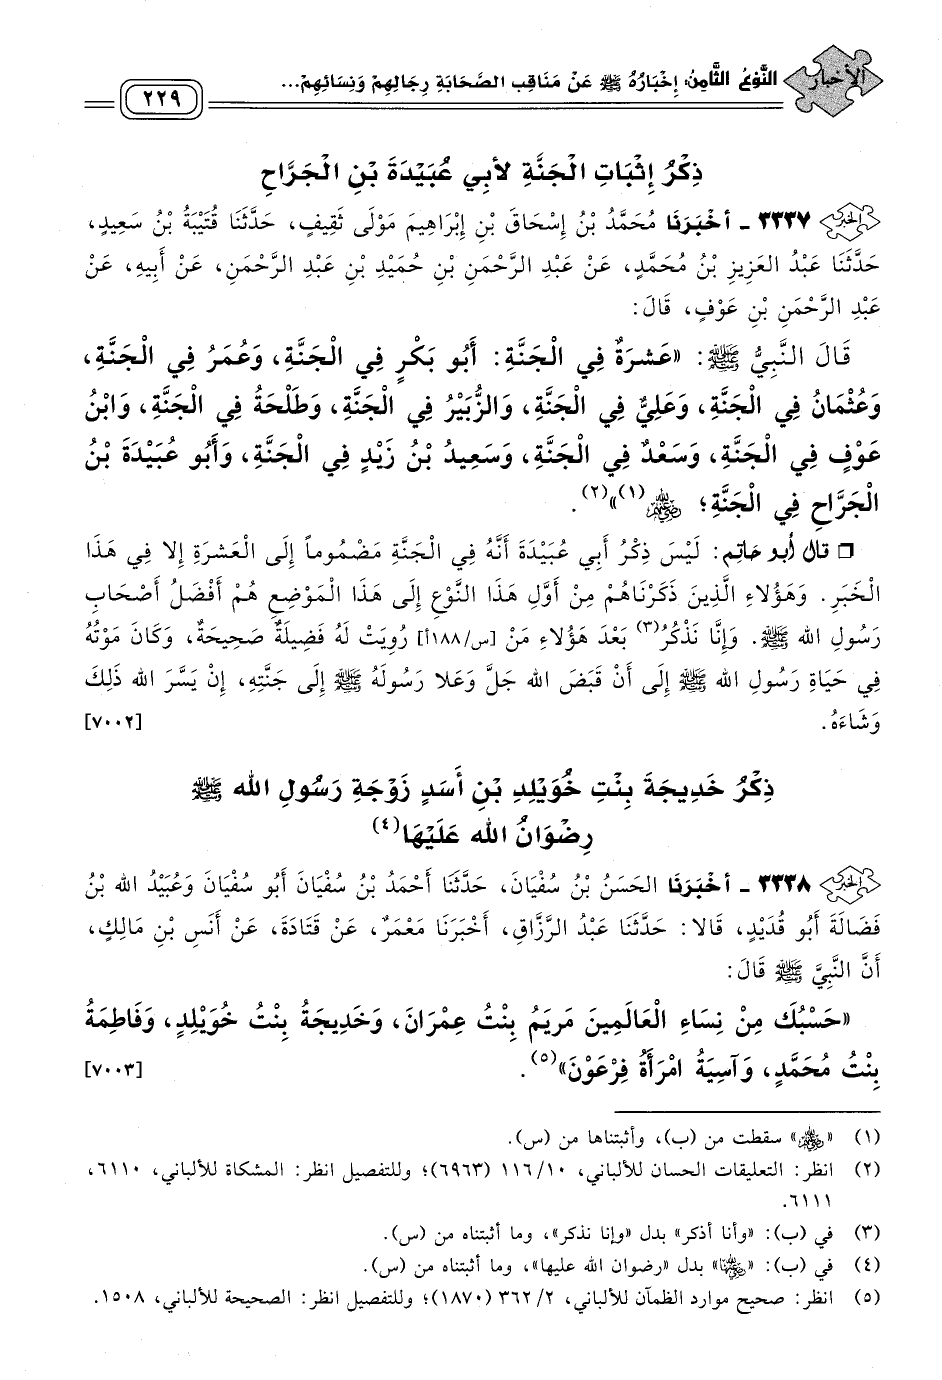 الأخبار
النَّوْعُ الثَّامِنُ: إِخْبَارُهُ ﷺ عَنْ مَنَاقِبِ الصَّحَابَةِ رِجَالِهِمْ وَنِسَائِهِمْ...
٢٢٩
ذِكْرُ إِثْبَاتِ الْجَنَّةِ لأَبِي عُبَيْدَةَ بْنِ الْجَرَّاحِ
الخبر ٣٣٣٧ - أَخْبَرَنَا مُحَمَّدُ بْنُ إِسْحَاقَ بْنِ إِبْرَاهِيمَ مَوْلَى ثَقِيفٍ، حَدَّثَنَا قُتَيْبَةُ بْنُ سَعِيدٍ،
حَدَّثَنَا عَبْدُ الْعَزِيزِ بْنُ مُحَمَّدٍ، عَنْ عَبْدِ الرَّحْمَنِ بْنِ حُمَيْدِ بْنِ عَبْدِ الرَّحْمَنِ، عَنْ أَبِيهِ، عَنْ
عَبْدِ الرَّحْمَنِ بْنِ عَوْفٍ، قَالَ:
قَالَ النَّبِيُّ ﷺ: «عَشرَةٌ فِي الْجَنَّةِ: أَبُو بَكْرٍ فِي الْجَنَّةِ، وَعُمَرُ فِي الْجَنَّةِ،
وَعُثْمَانُ فِي الْجَنَّةِ، وَعَلِيٌّ فِي الْجَنَّةِ، وَالزُّبَيْرُ فِي الْجَنَّةِ، وَطَلْحَةُ فِي الْجَنَّةِ، وَابْنُ
عَوْفٍ فِي الْجَنَّةِ، وَسَعْدٌ فِي الْجَنَّةِ، وَسَعِيدُ بْنُ زَيْدٍ فِي الْجَنَّةِ، وَأَبُو عُبَيْدَةَ بْنُ
الْجَرَّاحِ فِي الْجَنَّةِ؛ رضي الله عنهم(١)»(٢).
❒ قال أبو حاتم: لَيْسَ ذِكْرُ أَبِي عُبَيْدَةَ أَنَّهُ فِي الْجَنَّةِ مَضْمُوماً إِلَى الْعَشرَةِ إِلا فِي هَذَا
الْخَبَرِ. وَهَؤُلاءِ الَّذِينَ ذَكَرْنَاهُمْ مِنْ أَوَّلِ هَذَا النَّوْعِ إِلَى هَذَا الْمَوْضِعِ هُمْ أَفْضَلُ أَصْحَابِ
رَسُولِ الله ﷺ. وَإِنَّا نَذْكُرُ(٣) بَعْدَ هَؤُلاءِ مَنْ [س/١٨٨أ] رُوِيَتْ لَهُ فَضِيلَةٌ صَحِيحَةٌ، وَكَانَ مَوْتُهُ
فِي حَيَاةِ رَسُولِ الله ﷺ إِلَى أَنْ قَبَضَ الله جَلَّ وَعَلا رَسُولَهُ ﷺ إِلَى جَنَّتِهِ، إِنْ يَسَّرَ الله ذَلِكَ
وَشَاءَهُ. [٧٠٠٢]
ذِكْرُ خَدِيجَةَ بِنْتِ خُوَيْلِدِ بْنِ أَسَدٍ زَوْجَةِ رَسُولِ الله ﷺ
رِضْوَانُ الله عَلَيْهَا(٤)
الخبر ٣٣٣٨ - أَخْبَرَنَا الحَسَنُ بْنُ سُفْيَانَ، حَدَّثَنَا أَحْمَدُ بْنُ سُفْيَانَ أَبُو سُفْيَانَ وَعُبَيْدُ الله بْنُ
فَضَالَةَ أَبُو قُدَيْدٍ، قَالا: حَدَّثَنَا عَبْدُ الرَّزَّاقِ، أَخْبَرَنَا مَعْمَرٌ، عَنْ قَتَادَةَ، عَنْ أَنَسِ بْنِ مَالِكٍ،
أَنَّ النَّبِيَّ ﷺ قَالَ:
«حَسْبُكَ مِنْ نِسَاءِ الْعَالَمِينَ مَرْيَمُ بِنْتُ عِمْرَانَ، وَخَدِيجَةُ بِنْتُ خُوَيْلِدٍ، وَفَاطِمَةُ
بِنْتُ مُحَمَّدٍ، وَآسِيَةُ امْرَأَةُ فِرْعَوْنَ»(٥). [٧٠٠٣]
(١) «رضي الله عنهم» سقطت من (ب)، وأثبتناها من (س).
(٢) انظر: التعليقات الحسان للألباني، ١٠/ ١١٦ (٦٩٦٣)؛ وللتفصيل انظر: المشكاة للألباني، ٦١١٠،
٦١١١.
(٣) في (ب): «وأنا أذكر» بدل «وإنا نذكر»، وما أثبتناه من (س).
(٤) في (ب): «رضي الله عنها» بدل «رضوان الله عليها»، وما أثبتناه من (س).
(٥) انظر: صحيح موارد الظمآن للألباني، ٢/ ٣٦٢ (١٨٧٠)؛ وللتفصيل انظر: الصحيحة للألباني، ١٥٠٨.